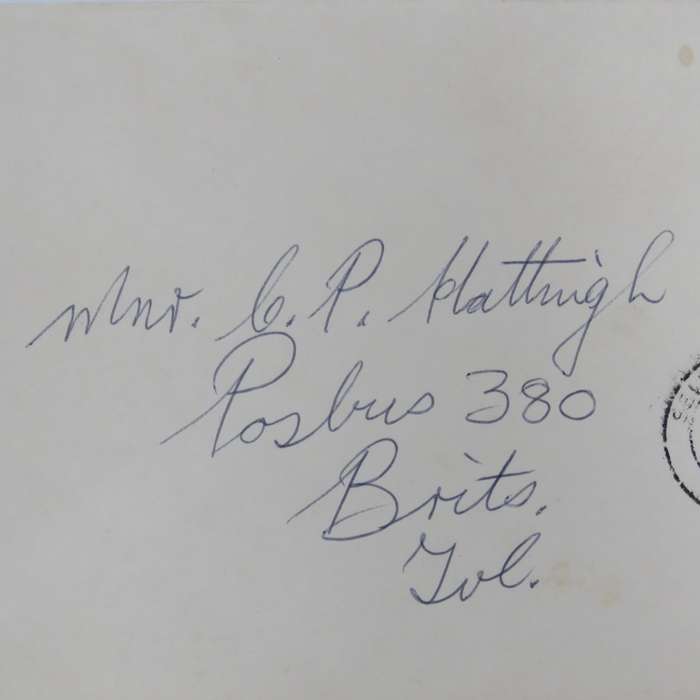 Mnr. C. P. Hattingh
Posbus 380
Brits.
Tvl.